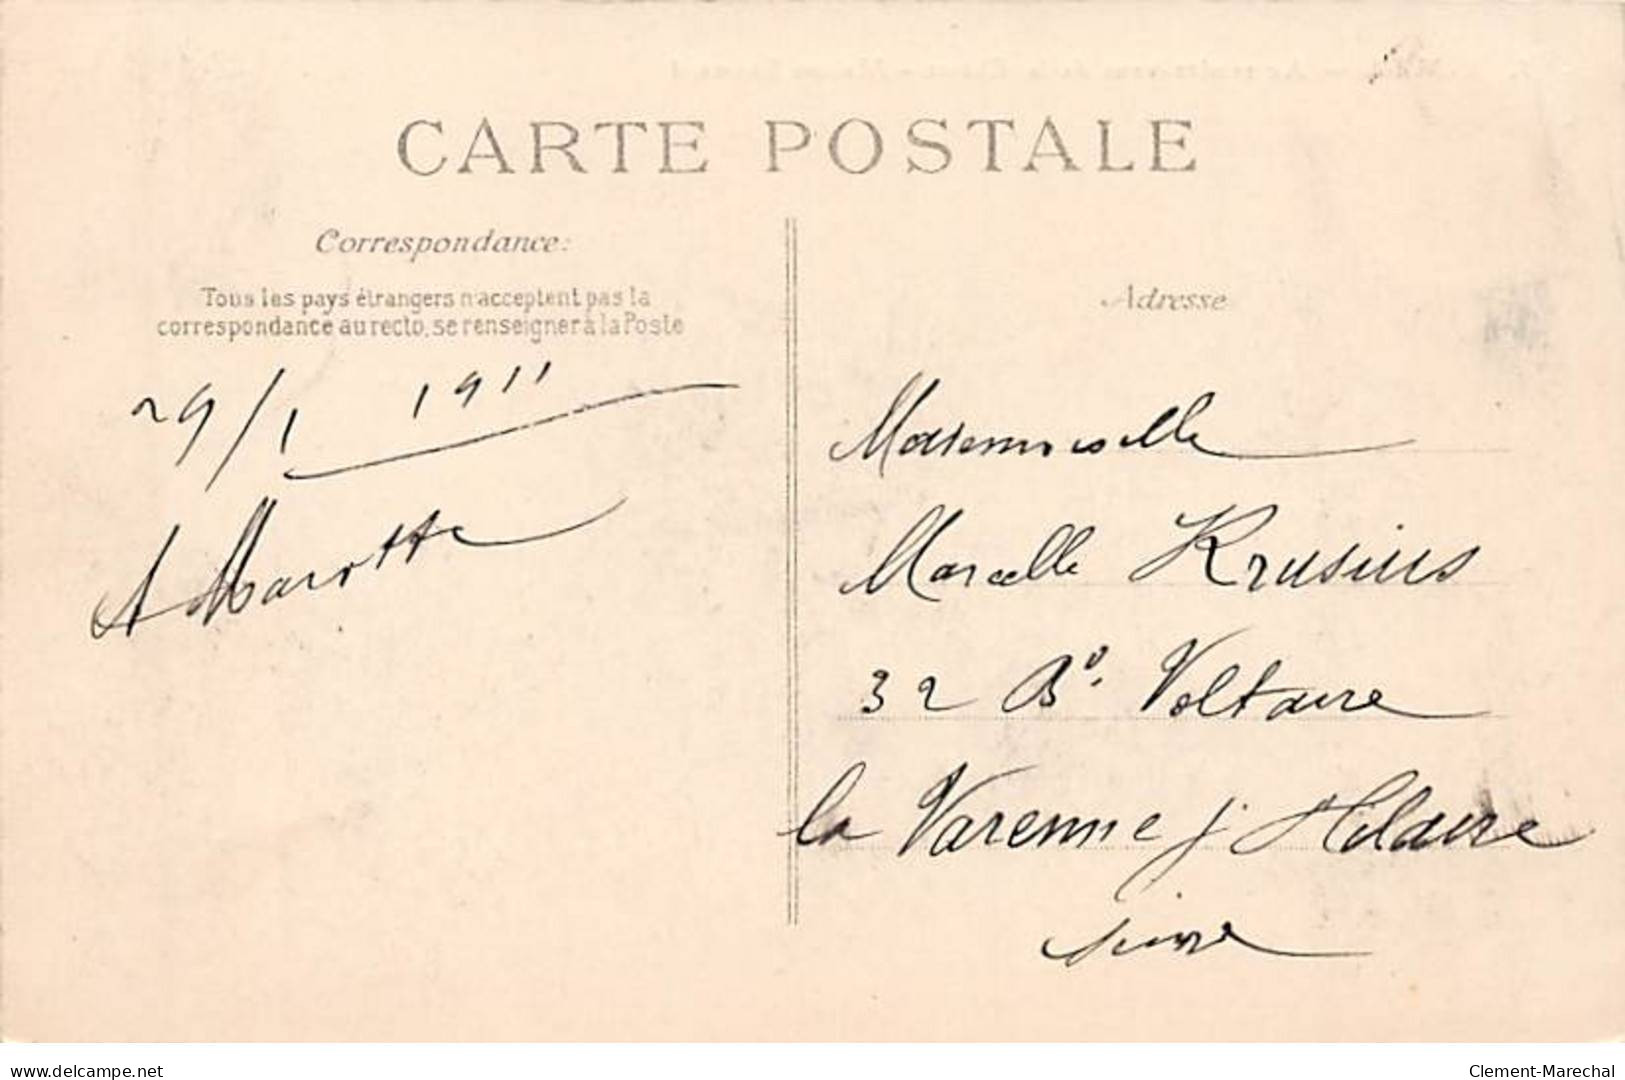 CARTE POSTALE
Correspondance:
Tous les pays étrangers n'acceptent pas la
correspondance au recto, se renseigner à la Poste
29/1 1911
A Marotte
Adresse
Mademoiselle
Marcelle Krusius
32 Bd. Voltaire
la Varenne St Hilaire
Seine
delcampe.net
Clement-Marechal